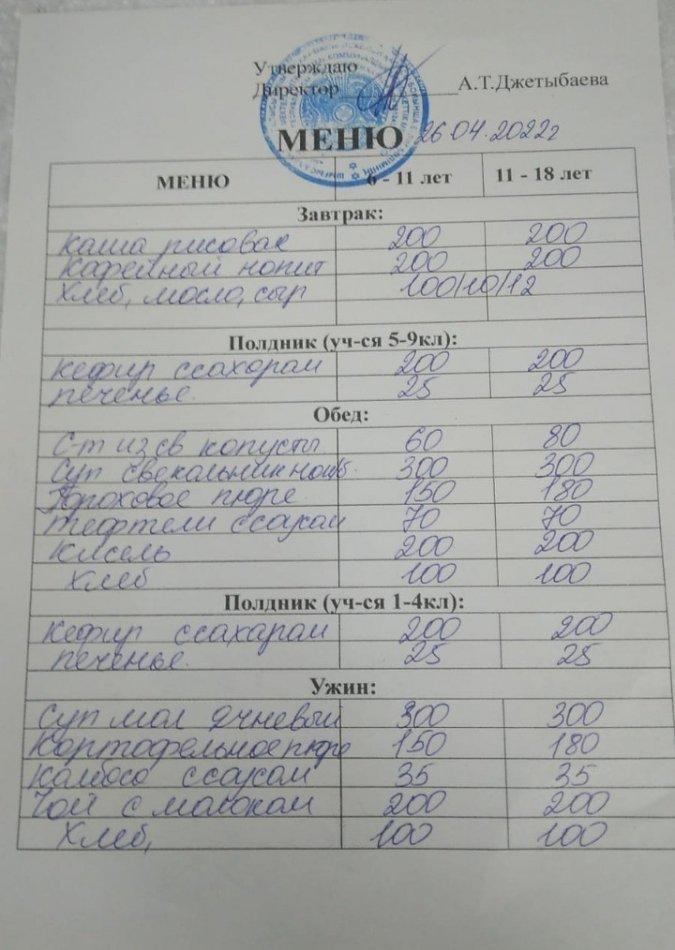 Утверждаю
Директор А.Т.Джетыбаева
МЕНЮ 26 04. 2022г
МЕНЮ 6 - 11 лет 11 - 18 лет
Завтрак:
Каша рисовая 200 200
Кофейный нопит 200 200
Хлеб, мосло, сыр 100/10/12
Полдник (уч-ся 5-9кл):
Кефир ссахорам 200 200
печенье. 25 25
Обед:
С-т из св копусты 60 80
Суп свекальник на м/б. 300 300
Гороховое пюре 150 180
Тефтели ссаусам 70 70
Кисель 200 200
Хлеб 100 100
Полдник (уч-ся 1-4кл):
Кефир ссахарам 200 200
печенье. 25 25
Ужин:
Суп мол ячневый 300 300
Картофельное пюре 150 180
Калбоса ссаусам 35 35
Чой с молокам 200 200
Хлеб, 100 100